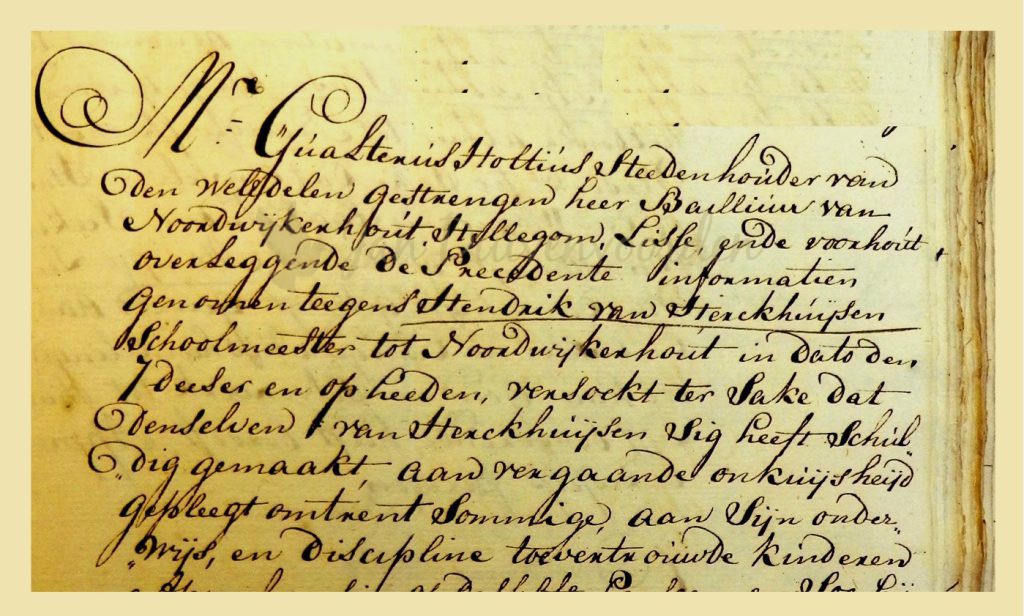 Mr. Gualterus Holtius Steedenhouder van
den WelEdelen gestrengen heer Bailliuw van
Noordwijkerhout, Hillegom, Lisse, ende voorhout,
overleggende de Precedente informatien
genomen teegens Hendrik van Sterckhuijsen
Schoolmeester tot Noordwijkerhout in dato den
7 deeser en op heeden, versockt ter Sake dat
denselven van Sterckhuijsen Sig heeft Schul„
„dig gemaakt, aan vergaande onkuijsheijd
gepleegt omtrent Sommige, aan Sijn onder„
„wijs, en discipline toevertrouwde kinderen